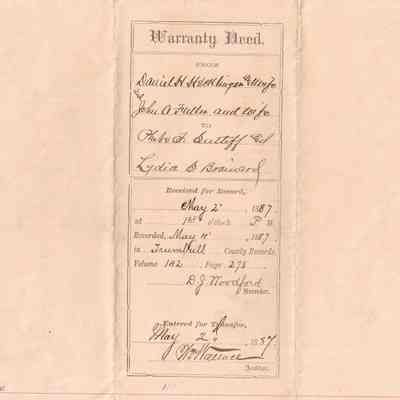 Warranty Deed.
FROM
Daniel H. & wife
and
John A Fuller and wife
TO
Phebe F. Sutliff and
Lydia B Brainard
Received for Record,
May 2 1887
at 1 o'clock P M.
Recorded, May 4 1887
in Trumbull County Records,
Volume 142 Page 275
D. J. Woodford
Recorder.
Entered for Transfer,
May 2 1887
Wm Wallace
Auditor.